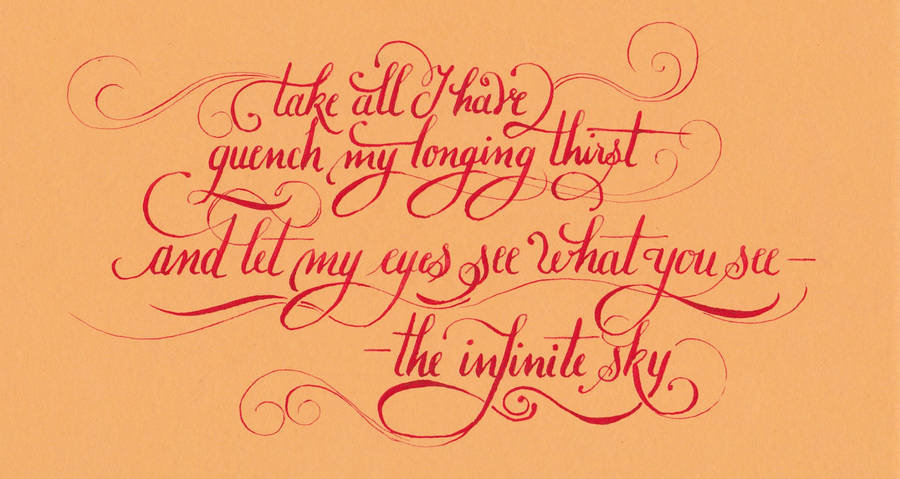 take all I have
quench my longing thirst
and let my eyes see what you see —
— the infinite sky